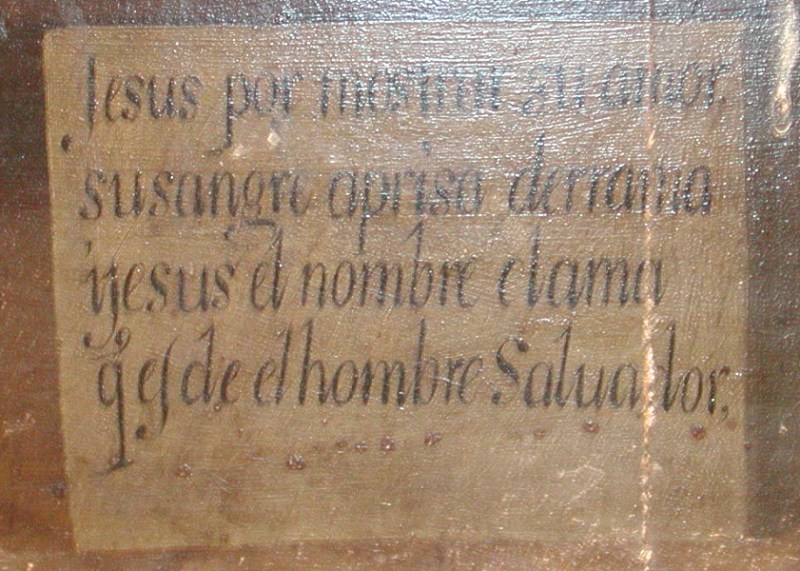 Jesus por mostrar su amor.
su sangre aprisa derrama
yesus el nombre clama
q̃ es de el hombre Saluador,